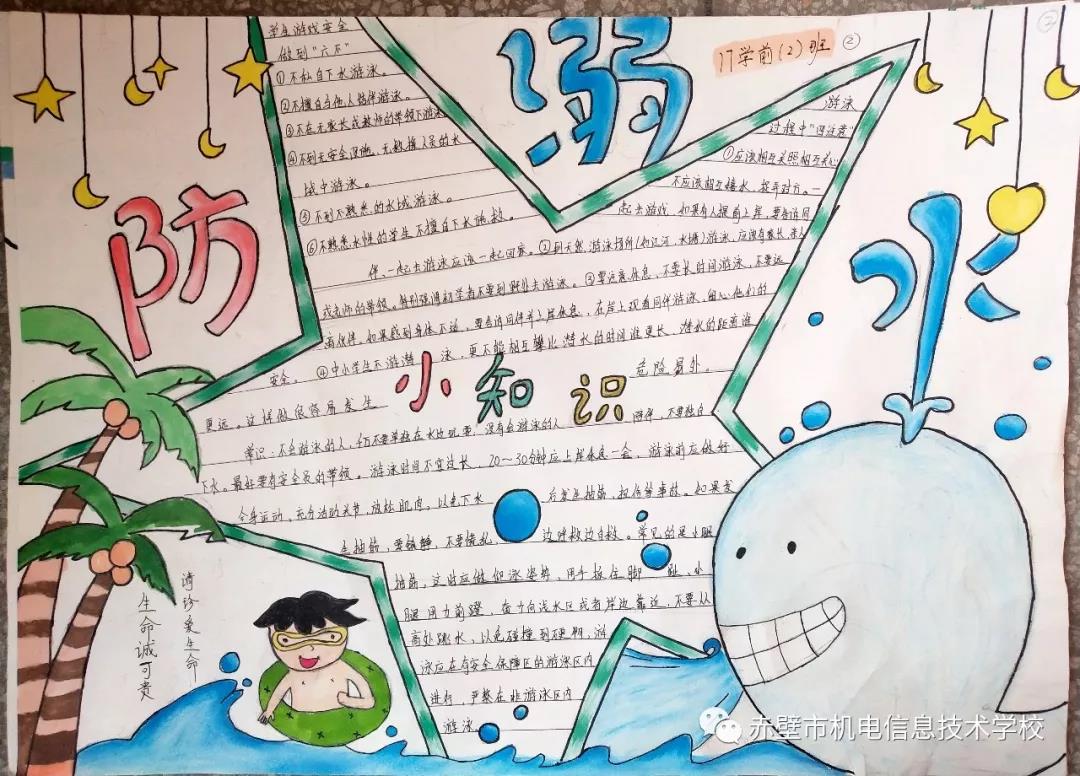 防
溺
水
小知识
17学前(2)班
②
②
学生游戏安全
做到“六不”
①不私自下水游泳。
②不擅自与他人结伴游泳。
③不在无家长或教师的带领下游泳
④不到无安全设施、无救援人员的水
域中游泳。
⑤不到不熟悉的水域游泳。
⑥不熟悉水性的学生不擅自下水施救。
游泳
过程中“四注意”
①应该相互关照相互关心
不应该相互嬉水、捉弄对方。一
起去游戏,如果有人提前上岸,要告诉同
伴,一起去游泳应该一起回家。②到天然游泳场所(如江河、水塘)游泳,应该有家长、亲人
或老师的带领。特别强调初学者不要到野外去游泳。③要注意休息,不要长时间游泳,不要远
离伙伴,如果感到身体不适,要告诉同伴并上岸休息,在岸上观看同伴游泳,留心他们的
安全。④中小学生不游潜泳,更不能相互攀比潜水的时间谁更长,潜水的距离谁
更远。这样做很容易发生危险意外。
常识:不会游泳的人,仍不要单独在水边玩耍,没有会游泳的人陪伴,不要独自
下水。最好要有安全员的带领。游泳时间不宜过长,20～30分钟应上岸休息一会,游泳前应做好
全身运动,充分活动关节,放松肌肉。以免下水后发生抽筋、扭伤等事故。如果发
生抽筋,要镇静,不要慌乱,边呼救边自救。常见的是小腿
抽筋,这时应做仰泳姿势,用手扳住脚趾,小
腿用力前蹬,奋力向浅水区或者岸边靠近,不要从
高处跳水,以免碰撞到硬物,游
泳应在有安全保障区的游泳区内
进行,严禁在非游泳区内
游泳
请珍爱生命
生命诚可贵
赤壁市机电信息技术学校